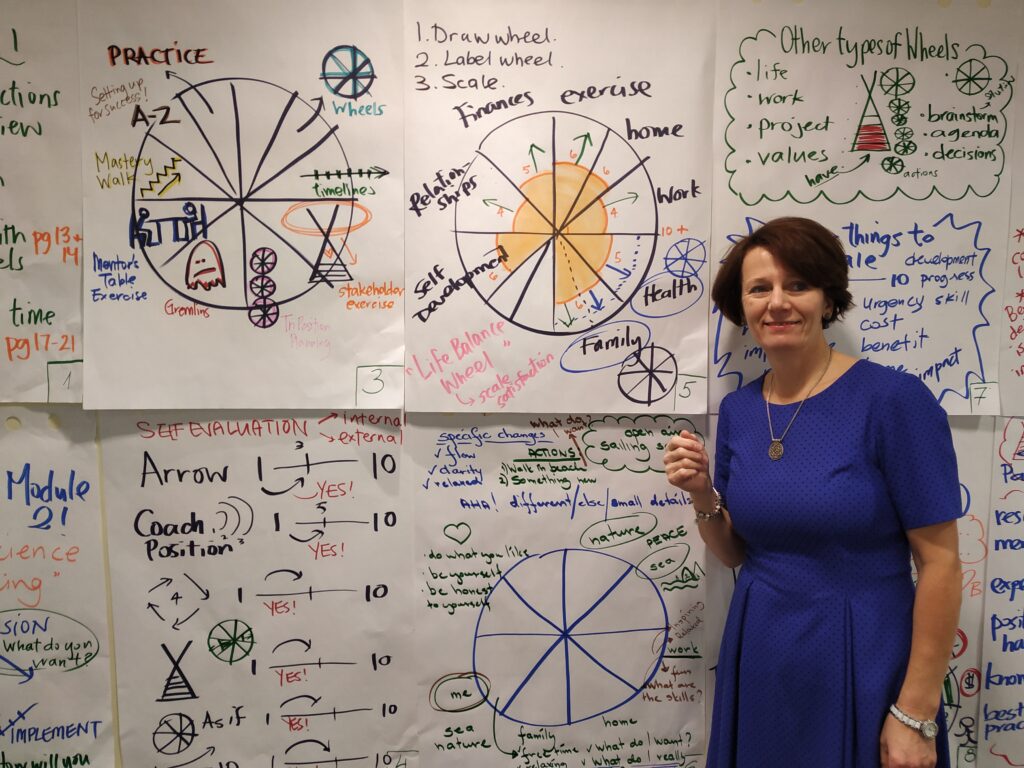 1
ctions
iew
pg 13 +
14
time
pg 17-21
1
PRACTICE
Setting up
for success!
A-Z
Wheels
Mastery
Walk
timelines
Mentor's
Table
Exercise
Gremlins
stakeholder
exercise
Tri Position
3
1. Draw wheel.
2. Label wheel.
3. Scale
Finances exercise
home
Relation
ships
Work
Self
Development
Health
Family
10 +
5
6
6
4
4
5
6
"Life Balance
Wheel"
scale
satisfaction
5
Other types of Wheels
· life
· work
· project
· values
have
· brainstorm
· agenda
· decisions
actions
Things to
ale
development
10 progress
urgency skill
cost
benefit
impact
7
Module
2!
ience
ing"
SION
What do you
want?
IMPLEMENT
SELF EVALUATION
→ Internal
→ external
Arrow 1 3 10
YES!
Coach
Position 1 5 10
YES!
4 1 10
YES!
1 10
YES!
As if 1 10
YES!
10
YES!
specific changes
√ flow
√ clarity
√ relaxed
what do
want
ACTIONS
1) Walk in beach
2) Something new
open air
sailing
AHA! different/else/small details
· do what you like
· be yourself
· be honest
to yourself
nature
PEACE
sea
work
fun
what are
the skills?
me
sea
nature
family
home
free time √ what do I want?
relaxing √ what do I really